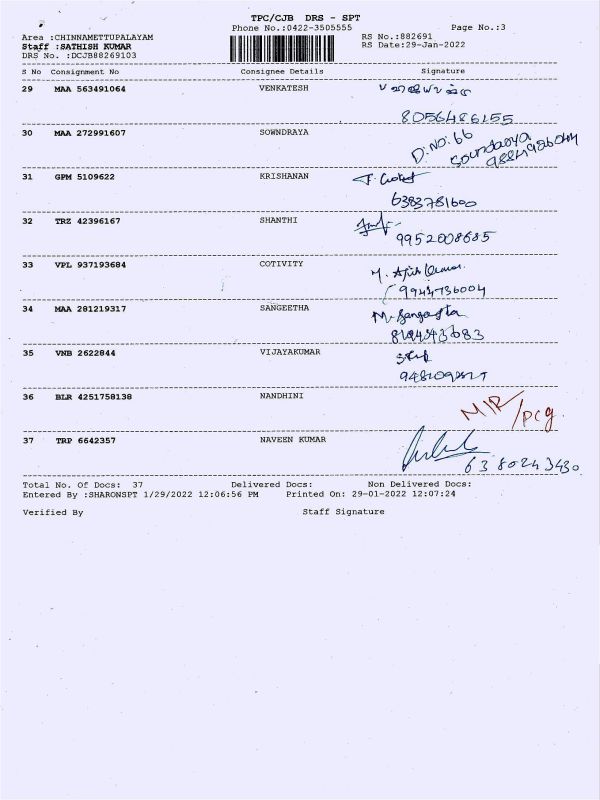 TPC/CJB DRS - SPT
Phone No.:0422-3505555
Page No.:3
Area :CHINNAMETTUPALAYAM
RS No.:882691
Staff :SATHISH KUMAR
RS Date:29-Jan-2022
DRS No. :DCJB88269103
S No Consignment No Consignee Details Signature
29 MAA 563491064 VENKATESH
8056486155
30 MAA 272991607 SOWNDRAYA
D.NO: 66
Soundarya
31 GPM 5109622 KRISHANAN
6383781600
32 TRZ 42396167 SHANTHI
9952008685
33 VPL 937193684 COTIVITY
M. Ajith Kumar.
9944736004
34 MAA 281219317 SANGEETHA
M. Sangeetha
35 VNB 2622844 VIJAYAKUMAR
36 BLR 4251758138 NANDHINI
N/R/pcg.
37 TRP 6642357 NAVEEN KUMAR
6380243430
Total No. Of Docs: 37 Delivered Docs: Non Delivered Docs:
Entered By :SHARONSPT 1/29/2022 12:06:56 PM Printed On: 29-01-2022 12:07:24
Verified By Staff Signature